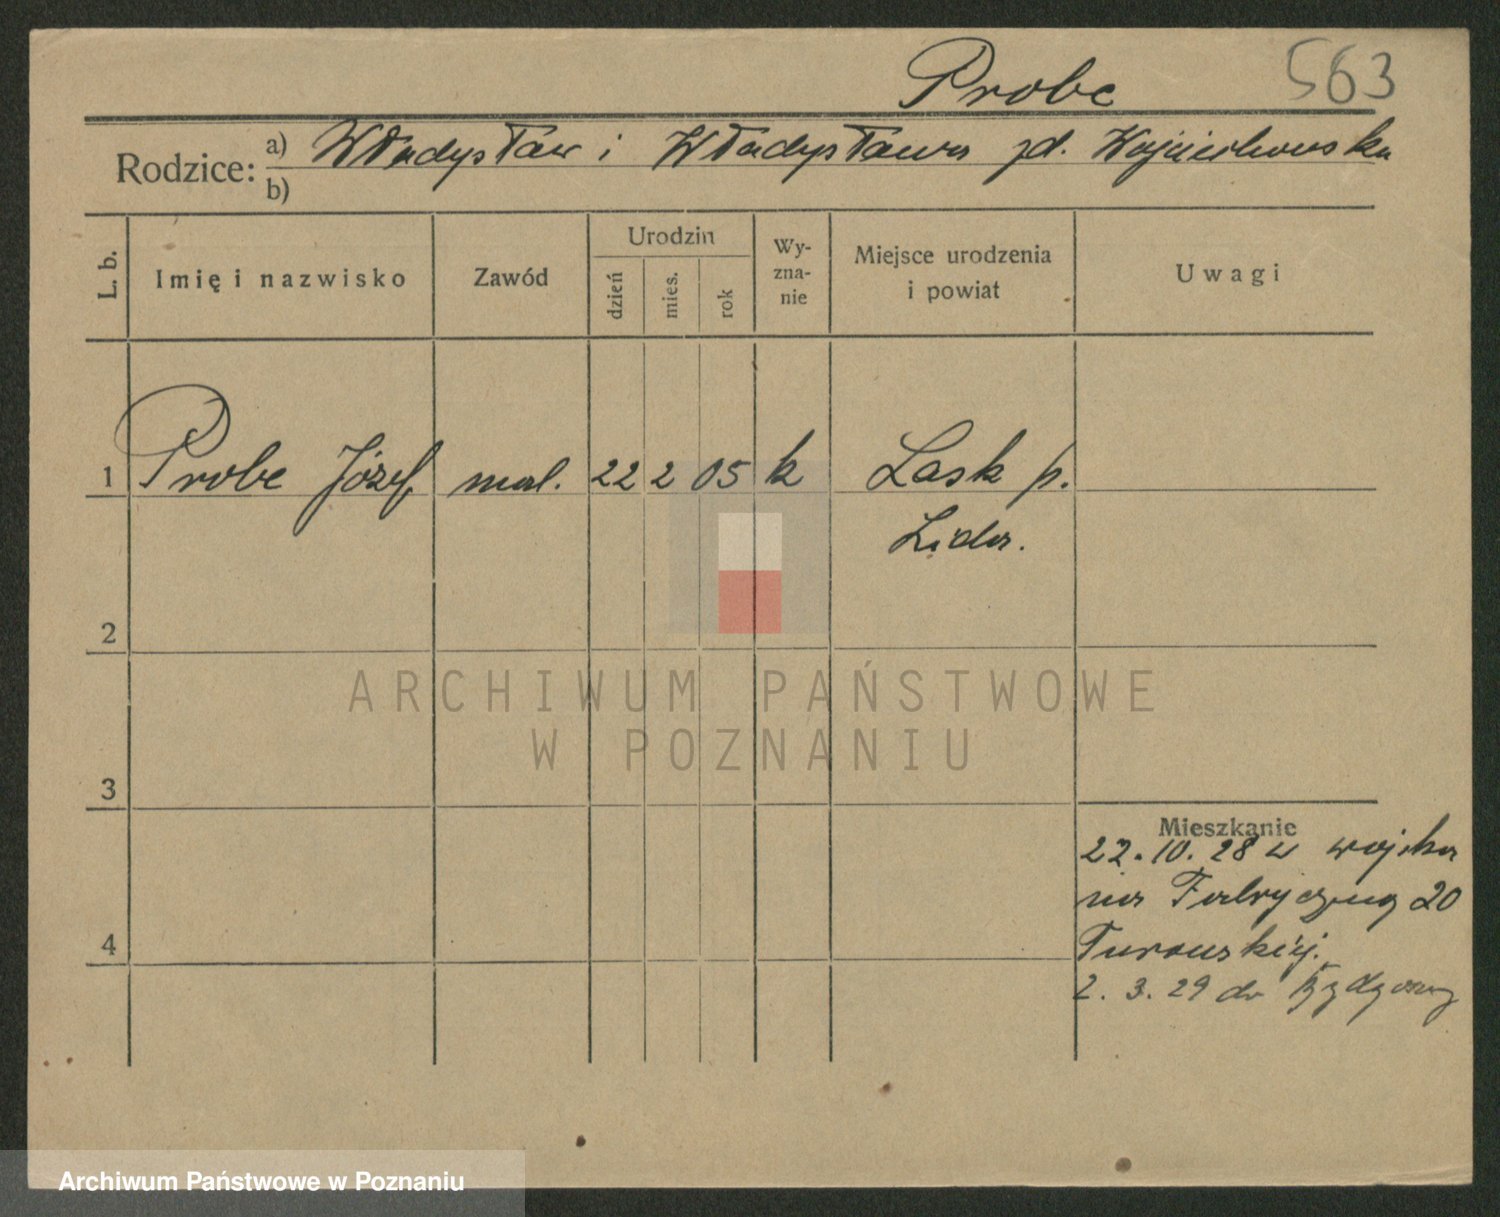 Probe 563
Rodzice: a) Władysław i Władysława zd. Wojciechowska
b)
L. b. Imię i nazwisko Zawód Urodzin dzień mies. rok Wy-zna-nie Miejsce urodzenia i powiat Uwagi
1 Probe Józef mal. 22 2 05 k Lask p.
Lida.
2
ARCHIWUM PAŃSTWOWE
W POZNANIU
3
Mieszkanie
22.10.28 z wojska
na Fabryczną 20
4 Turowskiej.
2. 3. 29 do
Archiwum Państwowe w Poznaniu